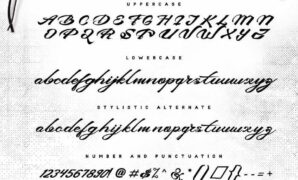 UPPERCASE
ABCDEFGHIJKLMN
OPQRSTUVWXYZ
LOWERCASE
abcdefghijklmnopqrstuvwxyz
STYLISTIC ALTERNATE
abcdefghijklmnopqrstuvwxyz
NUMBER AND PUNCTUATION
1234567890! @#$%^&*()[]{}--=+